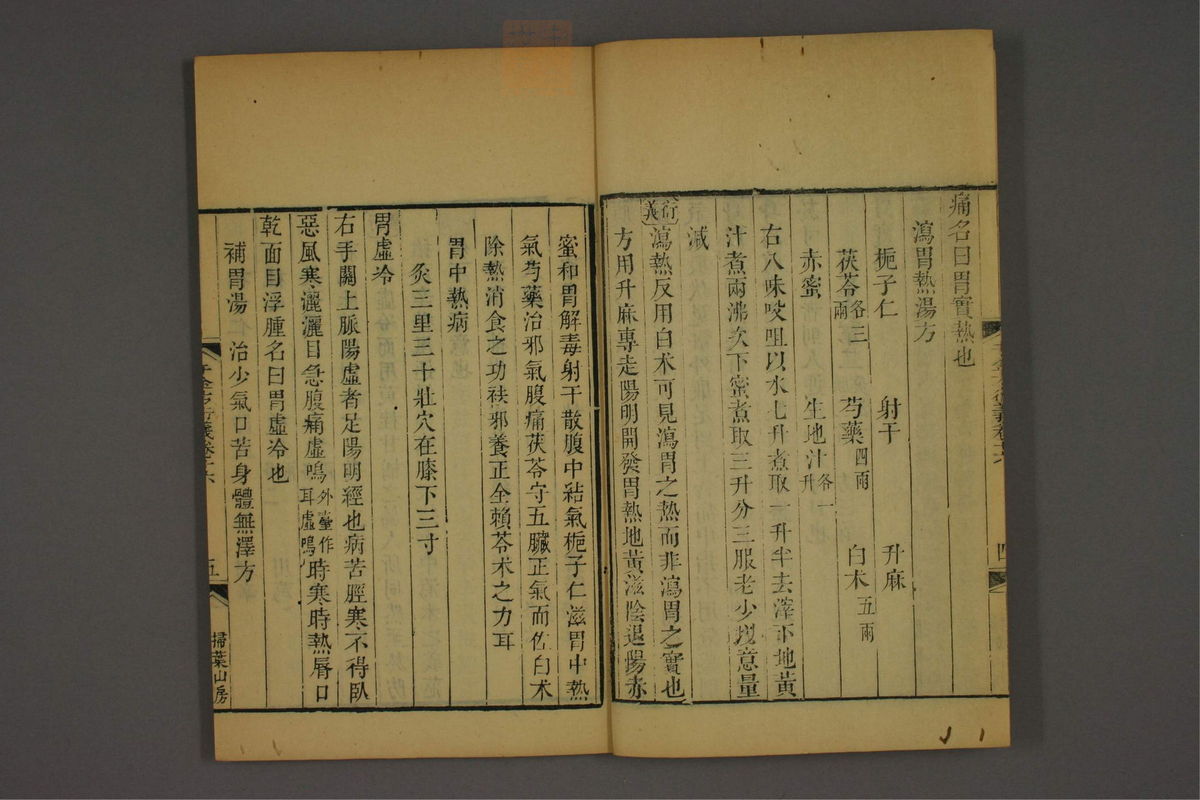 痛名曰胃實熱也
瀉胃熱湯方
梔子仁 射干 升麻
茯苓各三兩 芍藥四兩 白朮五兩
赤蜜 生地汁各一升
右八味㕮咀以水七升煮取一升半去滓下地黃
汁煮兩沸次下蜜煮取三升分三服老少以意量
減
衍義瀉熱反用白朮可見瀉胃之熱而非瀉胃之實也
方用升麻專走陽明開發胃熱地黃滋陰退陽赤
蜜和胃解毒射干散腹中結氣梔子仁滋胃中熱
氣芍藥治邪氣腹痛茯苓守五臟正氣而佐白朮
除熱消食之功祛邪養正全賴苓朮之力耳
胃中熱病
灸三里三十壯穴在膝下三寸
胃虛冷
右手關上脈陽虛者足陽明經也病苦脛寒不得臥
惡風寒灑灑目急腹痛虛鳴外臺作耳虛鳴時寒時熱唇口
乾面目浮腫名曰胃虛冷也
補胃湯 治少氣口苦身體無澤方
五
掃葉山房
四